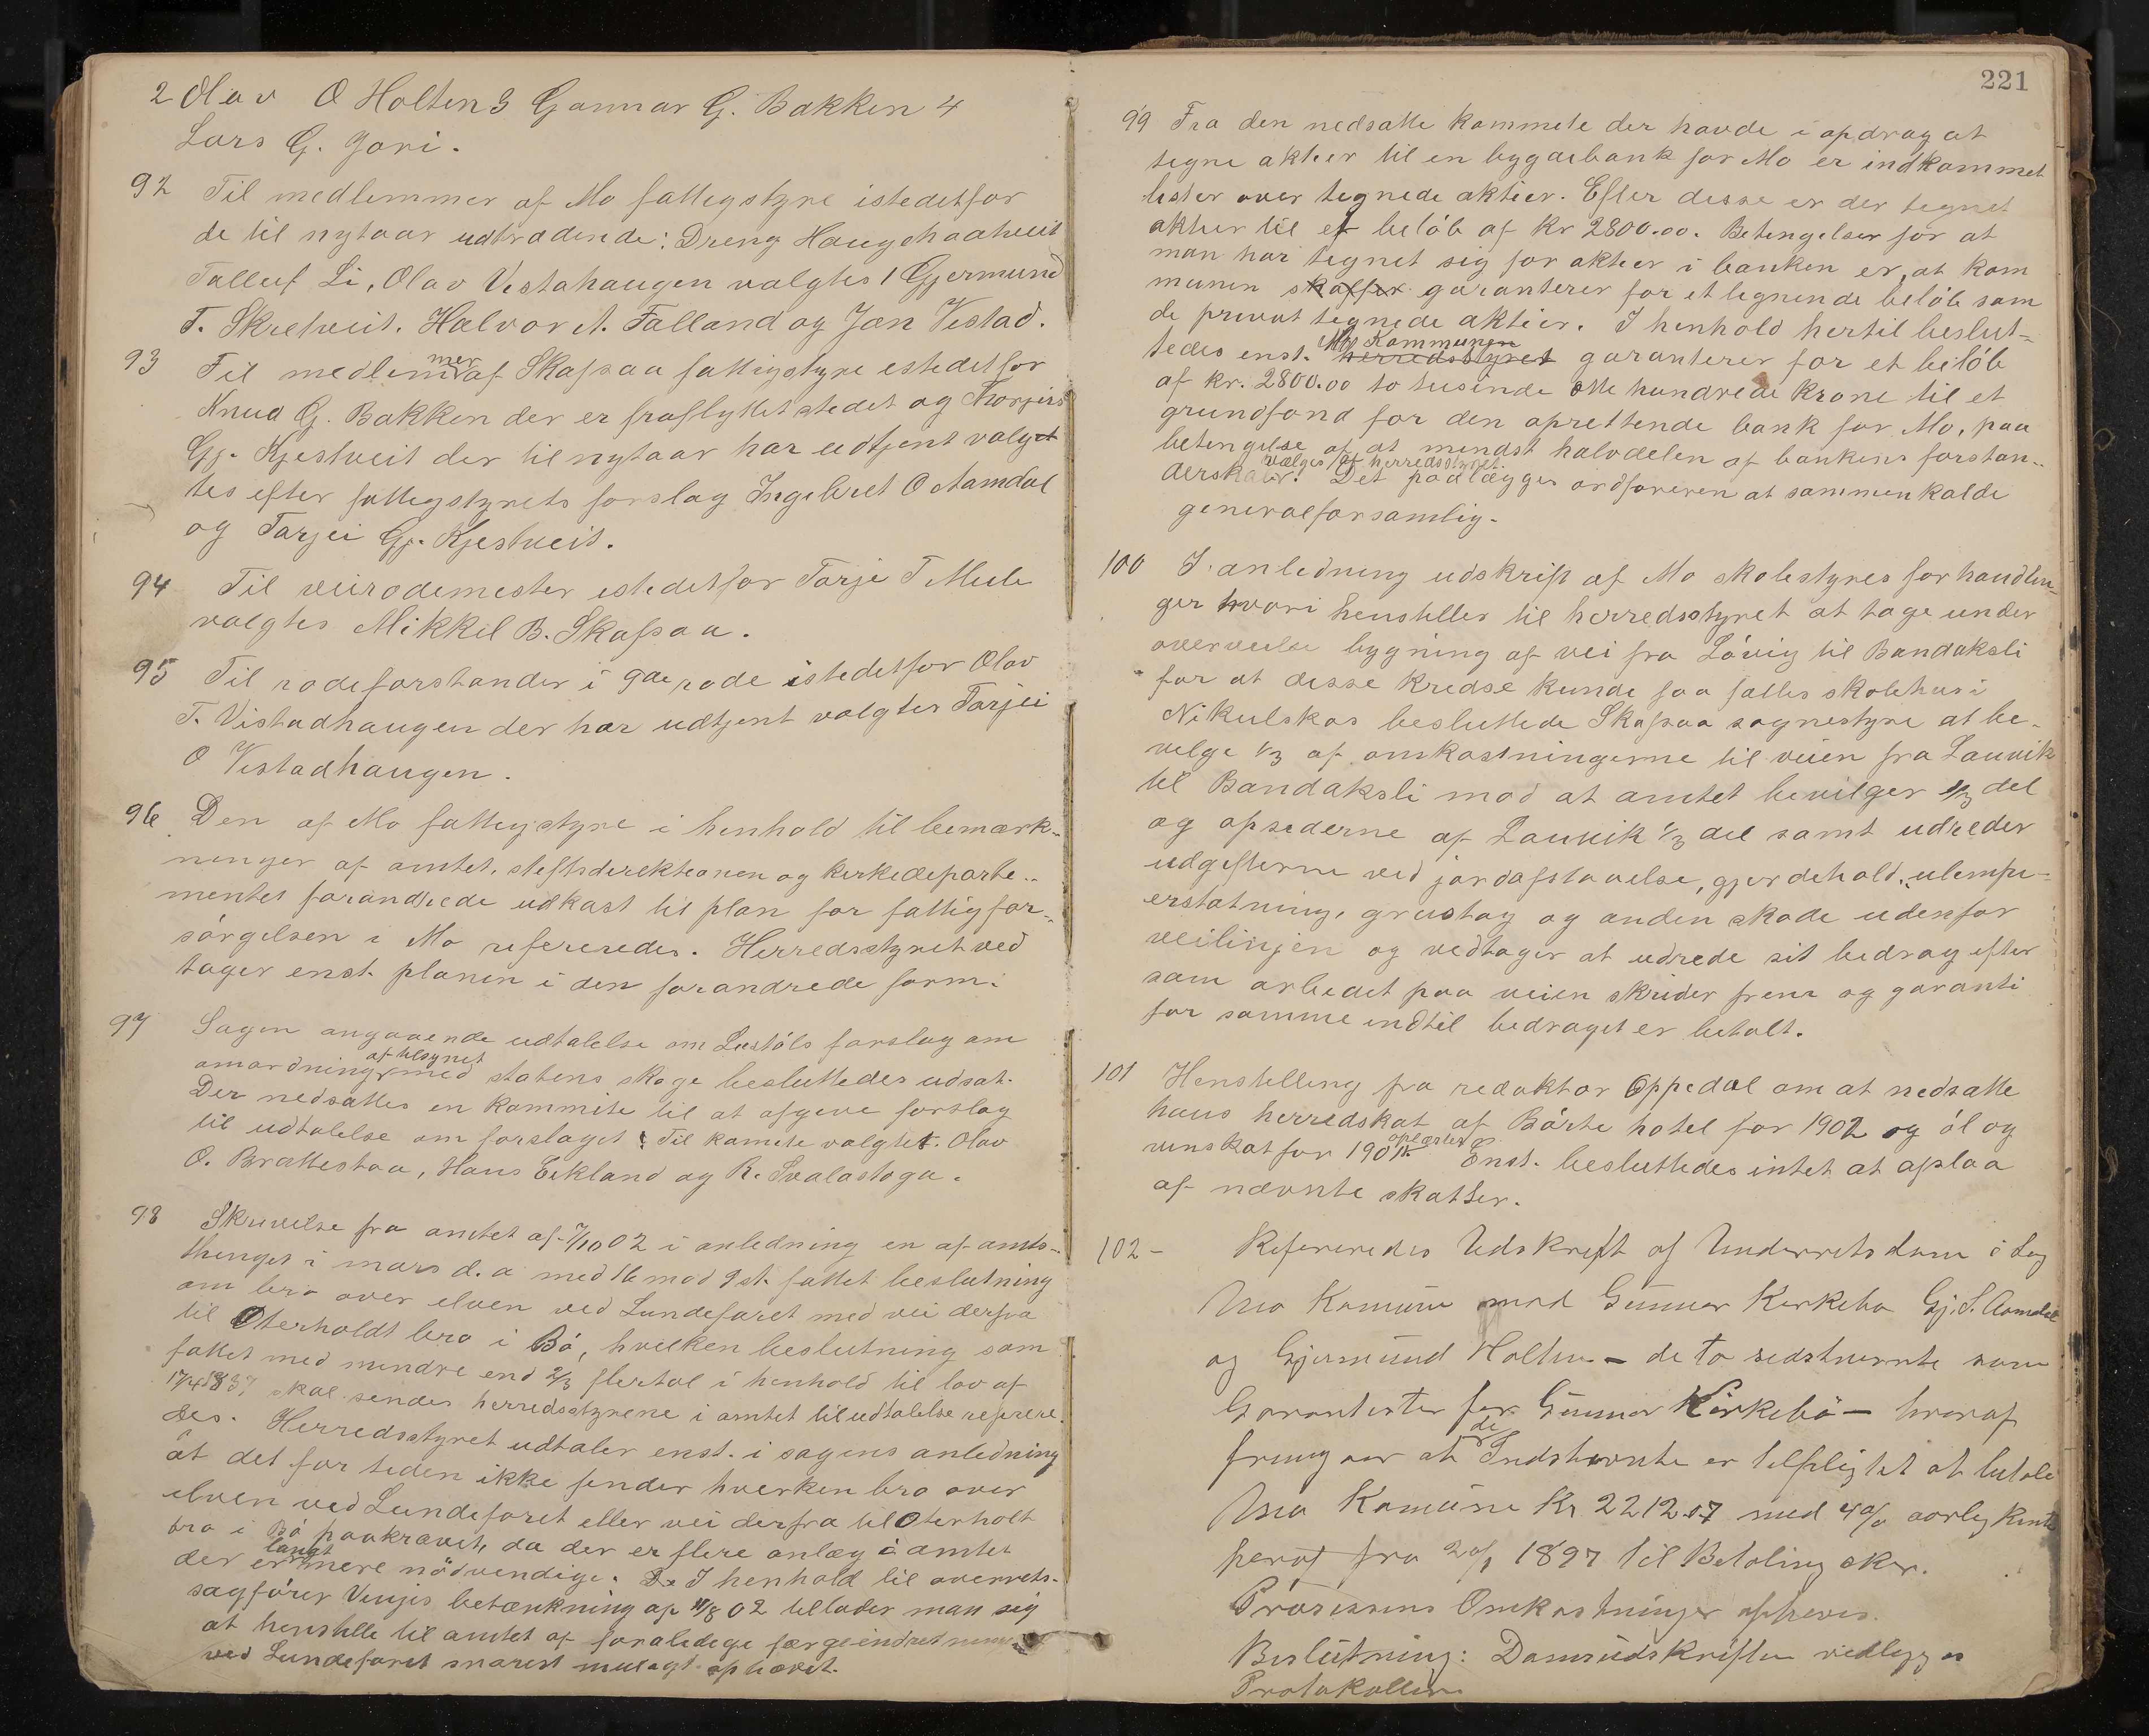 2 Olav O Holten 3 Gunnar G. Bakken 4
Lars G. Jori.
92 Til medlemmer af Mo fattigstyre istedetfor
de til nytaar udtrædende: Dreng Haugehaatveit
Talleif Li, Olav Vestahaugen valgtes 1 Gjermund
T. Skretveit. Halvor A. Falland og Jon Vestad.
93 Til medlemmer af Skafsaa fattigstyre istedetfor
Knud G. Bakken der er fraflyttet stedet og Thorgius
Gj. Kjestveit der til nytaar har udtjent valg-
tes efter fattigstyrets forslag Ingebret O Aamdal
og Tarjei Gj. Kjestveit.
94 Til veirodemester istedetfor Tarje T Mule
valgtes Mikkel B. Skafsaa.
95 Til rodeforstander i 9de rode istedetfor Olav
T. Vistadhaugen der har udtjent valgtes Tarjei
O Vestadhaugen.
96 Den af Mo fattigstyre i henhold til bemærk-
ninger af amtet, stiftsdirektionen og kirkedeparte-
mentet forandrede udkast til plan for fattigfor-
sørgelsen i Mo refereredes. Herredsstyret ved
tager enst. planen i den forandrede form.
97 Sagen angaaende udtalelse om Lastøls forslag om
omordning af tilsynet med statens skoge besluttedes udsat.
Der nedsattes en kommite til at afgive forslag
til udtalelse om forslaget. Til komite valgtet. Olav
O. Brattestaa, Hans Eikland og R. Svalastoga.
98 Skrivelse fra amtet af 7/10 02 i anledning en af amts-
thinget i mars d. a med 16 mod 9 st. fattet beslutning
om bro over elven ved Lundefaret med vei derfra
til Oterholdt bro i Bø, hvilken beslutning som
fattet med mindre end 2/3 flertal i henhold til lov af
17/4 1837 skal sendes herredsstyrene i amtet til udtalelse refere
des. Herredsstyret udtaler enst. i sagens anledning
at det for tiden ikke finder hverken bro over
elven ved Lundefaret eller vei derfra til Oterholt
bro i Bø paakrævet, da der er flere anlæg i amtet
der er langt mere nødvendige. I henhold til overrets-
sagfører Vinjes betænkning af 11/8 02 tillader man sig
at henstille til amtet at foraledige færgeindretningen
ved Lundefaret snarest muligt ophævet.
221
99 Fra den nedsatte kommete der havde i opdrag at
tegne aktier til en bygdebank for Mo er indkommet
lister over tegnede aktier. Efter disse er der tegnet
aktier til et beløb af Kr 2800.00. Betingelser for at
man har tegnet sig for aktier i banken er, at kom
munen skaffer garanterer for et lignende beløb som
de privat tegnede aktier. I henhold hertil beslut-
tedes enst. Mo Kommunen herredsstyret garanterer for et beløb
af kr. 2800.00 to tusinde otte hundrede krone til et
grundfond for den oprettende bank for Mo, paa
betingelse af, at mindst halvdelen af bankens forstan-
derskab vælges af herredsstyret. Det paalægges ordføreren at sammenkalde
generalforsamlig.
100 I anledning udskrift af Mo skolestyres forhandlin-
ger hvori henstilles til herredsstyret at tage under
overveielse bygning af vei fra Løvig til Bandaksli
for at disse kredse kunde faa fælles skolehus i
Nikulskas besluttede Skafsaa sognestyre at be-
vilge 1/3 af omkostningerne til veien fra Lauvik
til Bandaksli mod at amtet bevilger 1/3 del
og opsiderne af Lauvik 1/3 del samt udreder
udgifterne ved jordafstaaelse, gjerdehold, ulempe-
erstatning, grustag og anden skade udenfor
veilinjen og vedtager at udrede sit bedrag efter
som arbeidet paa veien skrider frem og garanti
for samme indtil bedraget er betalt.
101 Henstilling fra redaktør Oppedal om at nedsætte
hans herredskat af Børte hotel for 1902 og øl og
vinskat for 1901 oplæstes. Enst. besluttedes intet at afslaa
af nævnte skatter.
102 - Refereredes Udskrift af Underretsdom i Sag
Mo Komune mod Gunnar Kirkebø Gj. S. Aamdal
og Gjermund Holten - de to sidstnævnte som
Garantister for Gunnar Kirkebø - hvoraf
fremgaar at de Indstevnte er tilpligtet at betale
Mo Komune Kr 2212.07 med 4% aarlig Rente
heraf fra 20/1 1897 til Betaling sker.
Prosessens Omkostninger ophæves.
Beslutning: Domsudskriften vedlægges
Protokollen